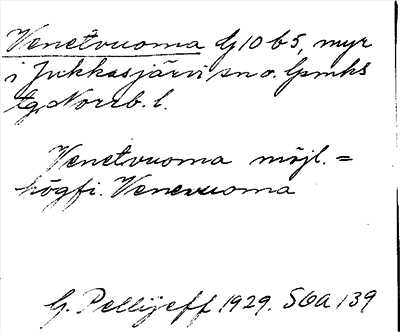 Venetvuoma G10 b5, myr
i Jukkasjärvi sn o. Gpmks
tg. Norrb. l.
Venetvuoma möjl. =
högfi. Venevuoma
G. Pellijeff 1929. SOA 139